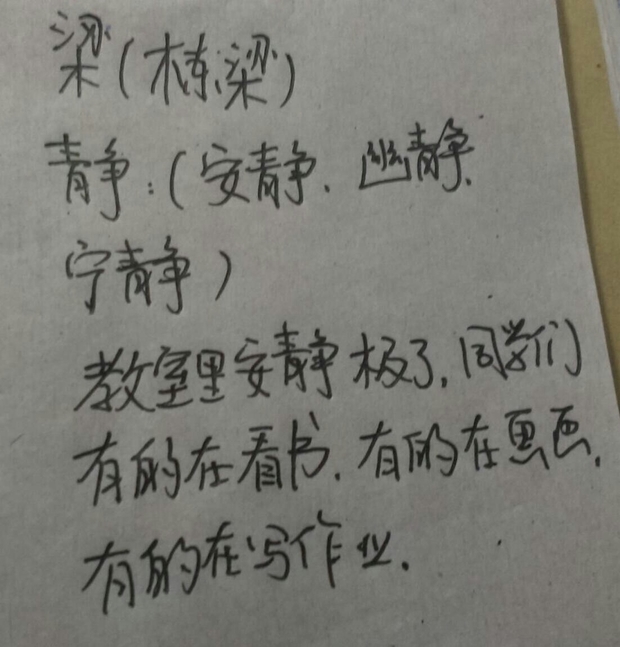 梁(栋梁)
静:(安静、幽静、
宁静)
教室里安静极了,同学们
有的在看书、有的在画画、
有的在写作业.